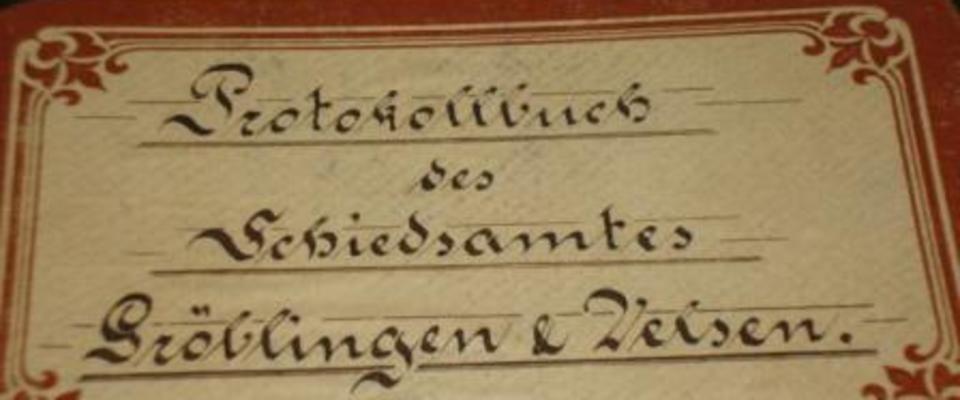 Protokollbuch
des
Schiedsamtes
Gröblingen & Velsen.